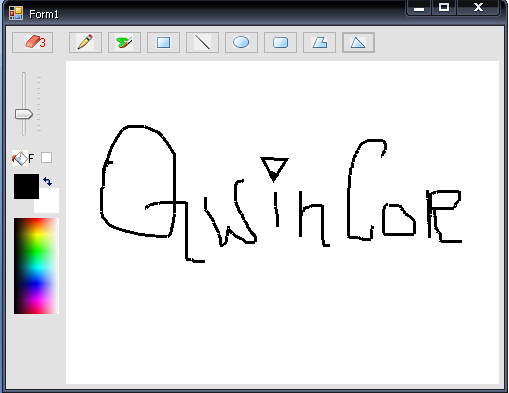 Form1
3
F
QwinCoR